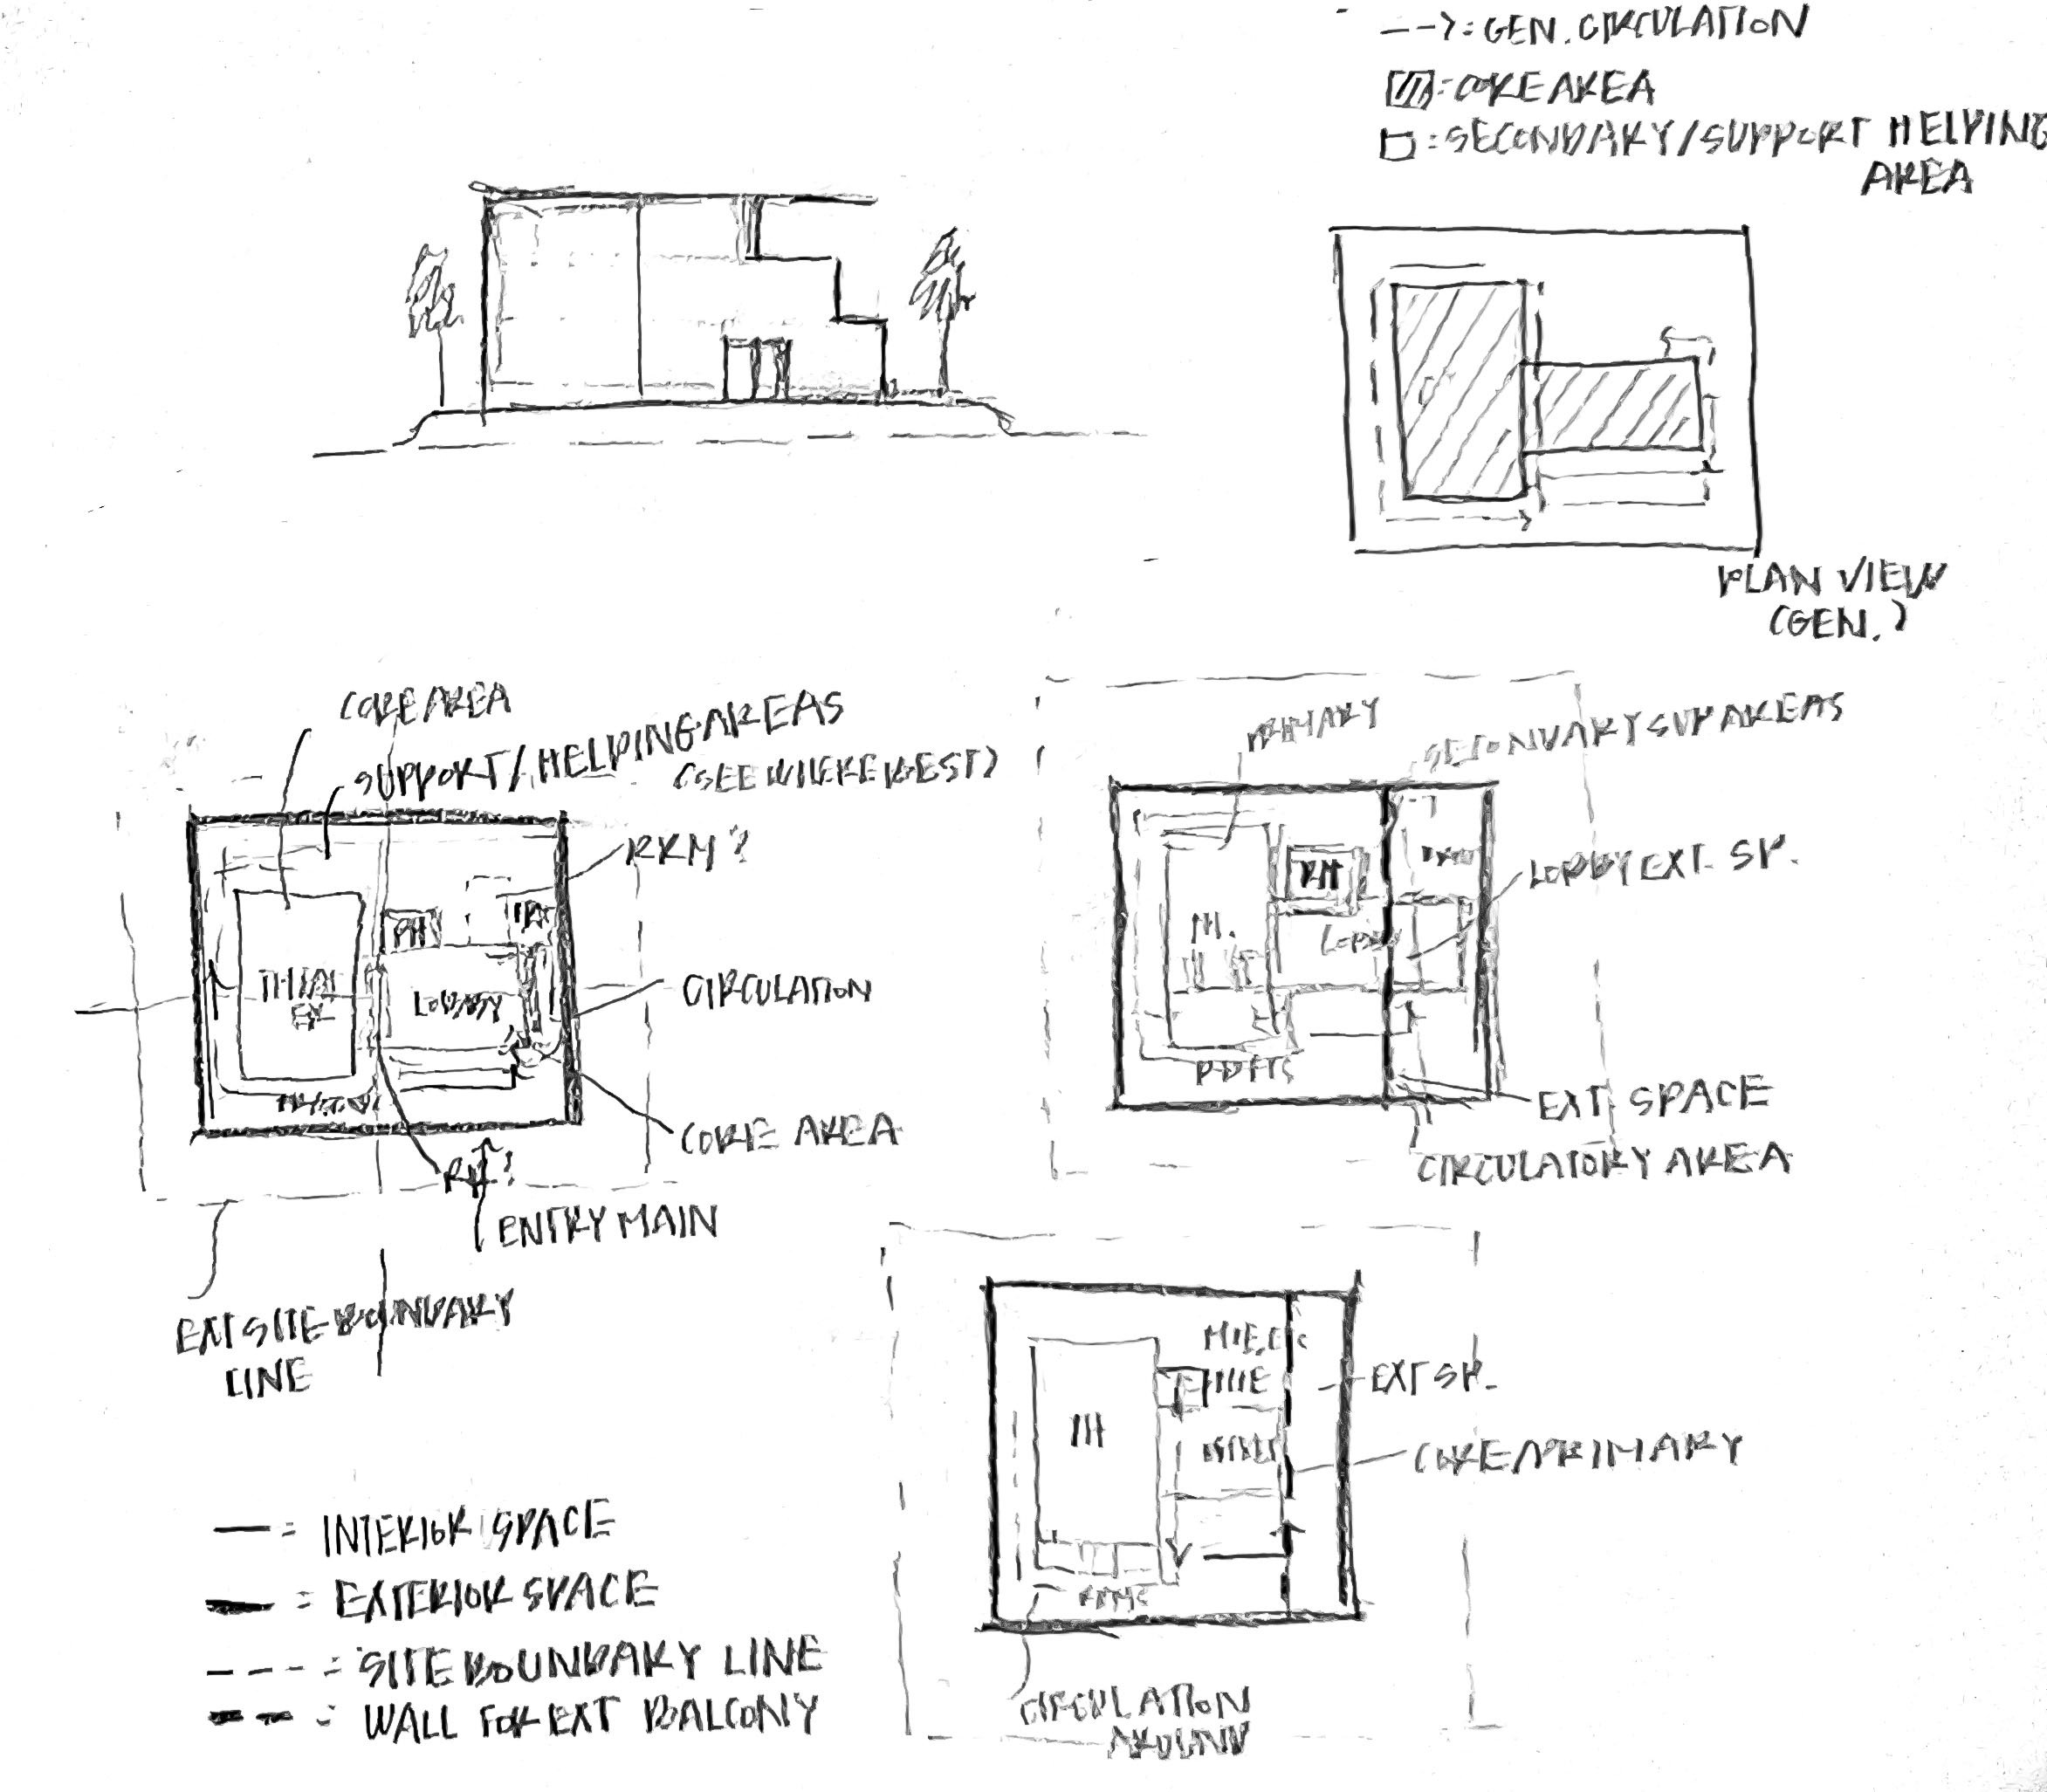 --> = GEN. CIRCULATION
= CORE AREA
= SECONDARY/SUPPORT HELPING
AREA
PLAN VIEW
(GEN.)
CORE AREA
SUPPORT/HELPING AREAS
(SEE WHERE BEST)
RRM?
PH
THEAT
ER
LOBBY
CIRCULATION
CORE AREA
RM?
ENTRY MAIN
EXT SITE BOUNDARY
LINE
PRIMARY
SECONDARY SUP AREAS
RM
TH.
LOBBY
LOBBY EXT. SP.
EXT. SPACE
CIRCULATORY AREA
TH
EXT SP.
CORE/PRIMARY
CIRCULATION
AROUND
= INTERIOR SPACE
= EXTERIOR SPACE
--- = SITE BOUNDARY LINE
= WALL FOR EXT BALCONY